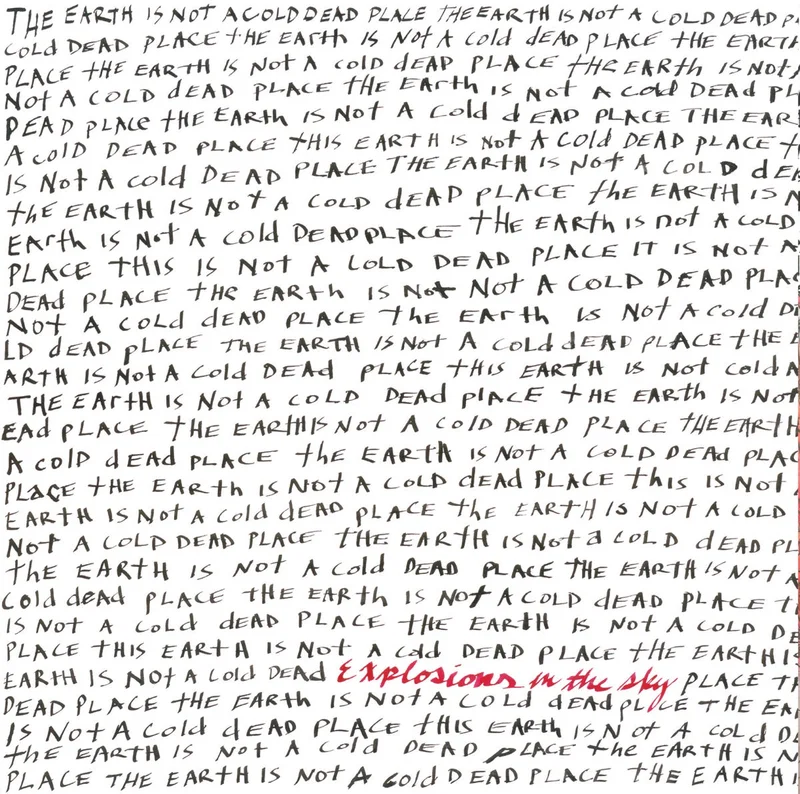 THE EARTH IS NOT A COLD DEAD PLACE THE EARTH IS NOT A COLD DEAD P
COLD DEAD PLACE tHE EARth IS NOt A cold dEAD PLACE tHE EARTH
PLACE tHE EARtH IS Not A cold dEAD PLACE tHE EARth IS NOt
Not A COLD dEAD PLACE tHE EARth is Not A cold DEAD PL
DEAD pLACe tHE EARth IS Not A Cold d EAD PLACE THE EAR
A colD DEAD PLACE tHIS EARTH IS Not A Cold DEAD PLACE t
IS Not A cold DEAD PLACE THE EARtH IS NOt A COLD dE
the EARTH IS Not A COLD dEAD PLACE the EARTH IS N
EARth IS Not A cold DEAD PLACE tHE EARth IS not A COLD
PLACE THIS IS Not A COLD DEAD PLACE IT IS NOt A
DEAd pLACE tHe EARth IS Not Not A COLD DEAD PLAC
NOt A COLd dEAD PLACE the EARth IS Not A cold D
LD dEAD pLACE THE EARTH IS Not A cold dEAD PLACE tHE E
ARTH IS Not A Cold DEAd PLACE tHIS EARTH IS Not cold A
THE EARtH IS Not A COLD DEAD plACE tHE EARth IS Not
EAd pLACE tHE EARtH IS Not A COlD DEAD PLACE tHE EARTH
A COLD dEAd pLACE the EARTH IS NOt A COLD DEAd PLAC
PLACE tHE EARth IS NOt A COLD dEAD PLACE this IS Not
EARTH IS Not A Cold dEAD PLACE the EARTH IS Not A COLD
Not A COLD DEAD PLACE tHE EARtH IS Not a COLD dEAD PL
the EARTH IS Not A cold DEAD PLACE THE EARTH IS Not A
COld dead PLACE tHE EARth IS NOt A COLD dEAD PLACE t
IS Not A Cold dEAD PLACE tHE EARTH IS Not A COLD DE
PLACE tHIS EARTH IS Not A Cold DEAD PLACE the EARTH IS
EARTH IS Not A Cold DEAD Explosions in the sky PLACE tH
DEAD PLACE tHE EARth IS NOt A COLD dEAd pLACE tHE EA
IS Not A Cold dEAD PLACE tHIS EARth IS Not A COLD D
the EARTH IS Not A COld DEAD PLACE the EARTH IS N
PLACE THE EARTH IS Not A cold DEAD PLACE tHE EARTH I